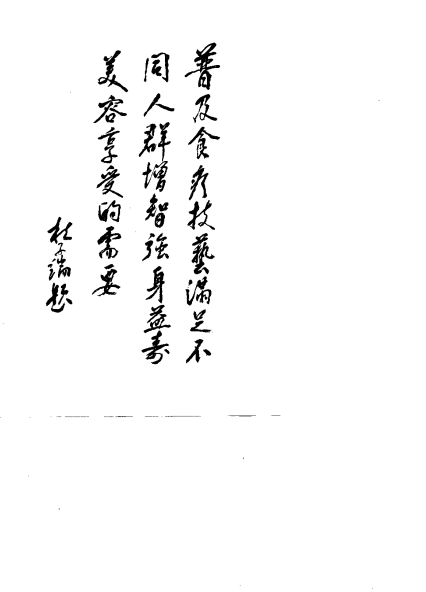 普及食疗技藝满足不
同人群增智强身益寿
美容享受的需要
杜子端题